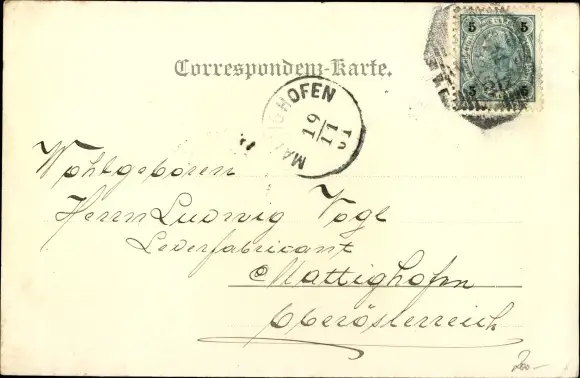 5 5
5 5
Correspondenz-Karte.
MATTIGHOFEN
19
11
Wohlgeboren
Herrn Ludwig Vogl
Lederfabricant
Mattighofen
Oberösterreich
200-